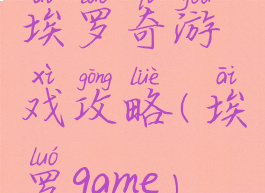 āi luó qí yóu
埃罗奇游
xì gōng lüè āi
戏攻略(埃
luó
罗game)